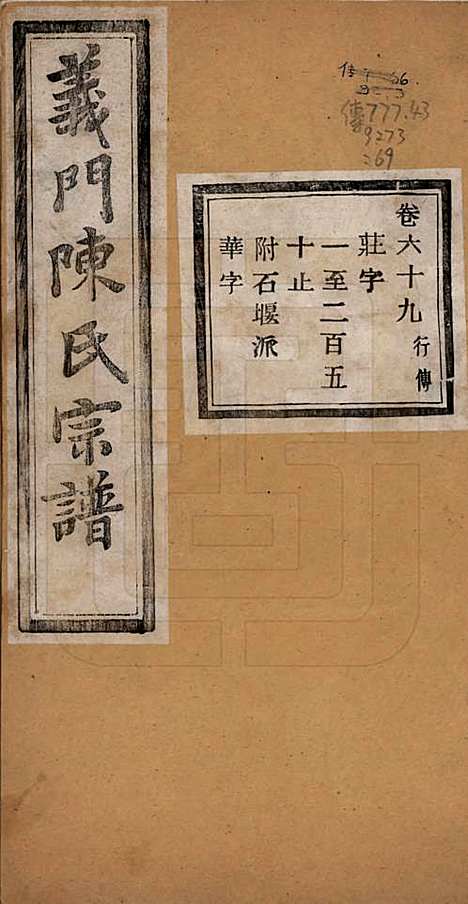 義門陳氏宗譜
傳777.43
9273
:69
卷六十九 行傳
莊字
一至二百五
十止
附石堰派
華字